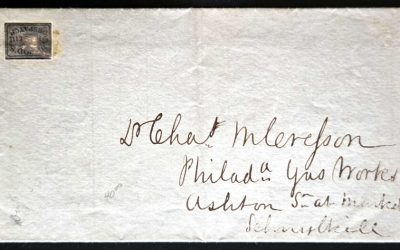 Dr Chas M Cresson
Philada Gas Works
Ashton St at Market
Schuylkill